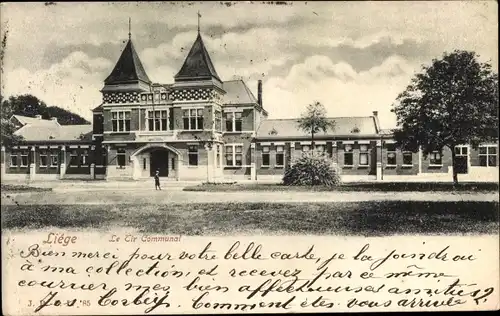 Liége Le Tir Communal
Bien merci pour votre belle carte, je la joindrai
à ma collection, et recevez par ce même
courrier mes bien affectueuses amitiés?
Jos. Corbey. Comment êtes vous arrivée?